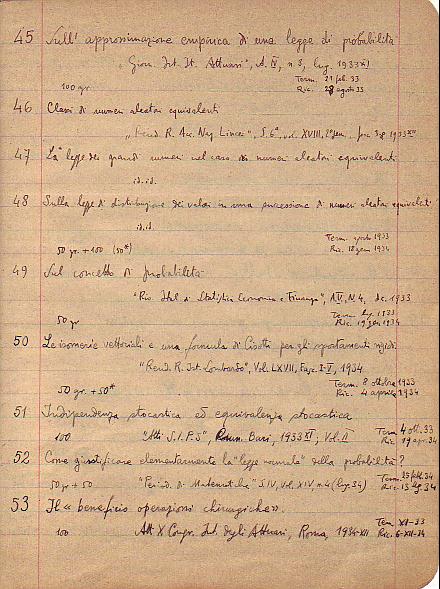 45 Sull' approssimazione empirica di una legge di probabilità
"Giorn. Ist. It. Attuari", A. IV, n. 3, lug. 1933 XI
Term. 21 feb. 33
100 gr. Ric. 28 agosto 33
46 Classi di numeri aleatori equivalenti
"Rend. R. Acc. Naz. Lincei", S. 6ª, vol. XVIII, 2º sem. 1933 XII
47 La legge dei grandi numeri nel caso di numeri aleatori equivalenti
id. id.
48 Sulla legge di distribuzione dei valori in una successione di numeri aleatori equivalenti
id. id.
Term. agosto 1933
50 gr. + 100 (50*) Ric. 18 gen 1934
49 Sul concetto di probabilità
"Riv. Ital. di Statistica Economia e Finanza", A. V, N. 4, dic. 1933
Term. lug. 1933
50 gr Ric. 19 gen 1934
50 Le isomerie vettoriali e una formula di Cisotti per gli spostamenti rigidi
"Rend. R. Ist. Lombardo", Vol. LXVII, Fasc. I-V, 1934
Term. 8 ottobre 1933
50 gr. + 50* Ric. 4 aprile 1934
51 Indipendenza stocastica ed equivalenza stocastica
100 "Atti S.I.P.S", Bari, 1933 XI, Vol. II Term 4 ott. 33
Ric. 19 apr. 34
52 Come giustificare elementarmente la "legge normale" della probabilità?
50 gr + 50 "Period. di Matematiche" S. IV, Vol. XIV, n. 4 (lug. 34) Term. 25 feb. 34
Ric. 13 lug 34
53 Il «beneficio operazioni chirurgiche».
100 Atti X Congr. Int. degli Attuari, Roma, 1934-XII Term XI-33
Ric. 6-XII-34